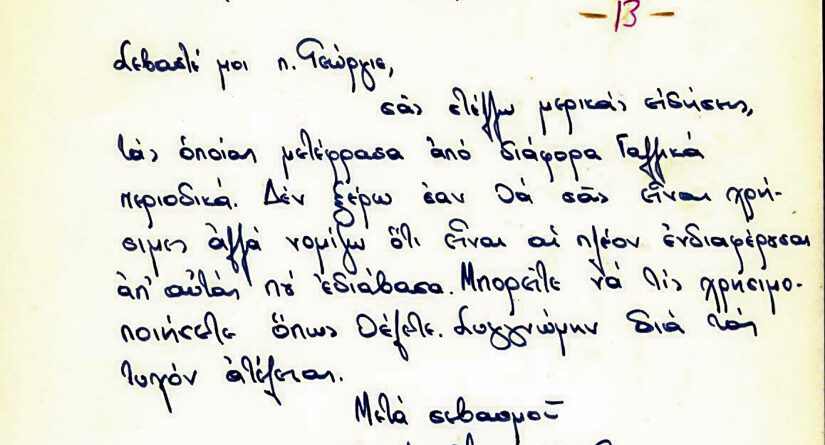 - 13 -
Σεβαστέ μοι π. Γεώργιε,
σᾶς στέλλω μερικάς εἰδήσεις,
τάς ὁποίας μετέφρασα ἀπό διάφορα Γαλλικά
περιοδικά. Δέν ξέρω ἐαν θά σᾶς εἶναι χρή-
σιμες ἀλλά νομίζω ὅτι εἶναι αἱ πλέον ἐνδιαφέρουσαι
ἀπ' αὐτάς πύ ἐδιάβασα. Μπορεῖτε νά τίς χρησιμο-
ποιήσετε ὅπως θέλετε. Συγγνώμην διά τάς
τυχόν ἀτέλειας.
Μετά σεβασμοῦ